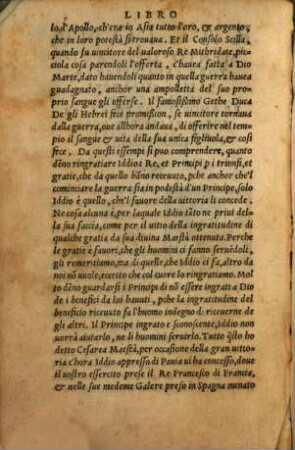 LIBRO
lo d'Apollo, ch'era in Asia tutto l'oro, & argento,
che in loro potestà si trouaua. Et il Consolo Scilla,
quando fu uincitore del ualoroso Re Mithridate, pic
ciola cosa parendoli l'offerta, c'haueà fatta à Dio
Marte, dato hauendoli quanto in quella guerra hauea
guadagnato, anchor una ampolletta del suo pro-
prio sangue gli offerse. Il famosißimo Gethe Duca
De gli Hebrei fece promißion, se uincitore tornaua
dalla guerra, oue allhora andaua, di offerire nel tem-
pio il sangue & uita della sua unica figliuola, e cosi
fece. Da questi essempi si puo comprendere, quanto
dẽno ringratiare Iddio i Re, et Principi p i triomfi, et
gratie, che da quello hãno receuuto, pche anchor che'l
cominciare la guerra sia in podestà d'un Principe, solo
Iddio è quello, che'l fauore della uittoria li concede.
Ne cosa alcuna è, per laquale Iddio tãto ne priui del-
la sua faccia, come per il uitio della ingratitudine di
qualche gratia da sua diuina Maestà ottenuta. Perche
le gratie e fauori, che gli huomini ci fanno seruẽdoli,
gli remeratiamo, ma di quelle, che Iddio ci fa, altro da
noi nõ uuole, eccetto che col cuore lo ringratiamo. Mol
to dẽno guardarsi i Principi di nõ essere ingrati a Dio
de i benefici da lui hauuti, pche la ingratitudine del
beneficio riceuuto fa l'huomo indegno di riceuerne de
gli altri. Il Principe ingrato e sconoscente, Iddio non
uorrà aiutarlo, ne li huomini seruirlo. Tutto q̃sto ho
detto Cesarea Maestà, per occasione della gran uitto-
ria c'hora Iddio appresso di Pauia ui ha concesso, doue
il uostro essercito prese il Re Francesco di Francia,
& nelle sue medeme Galere preso in Spagna menato